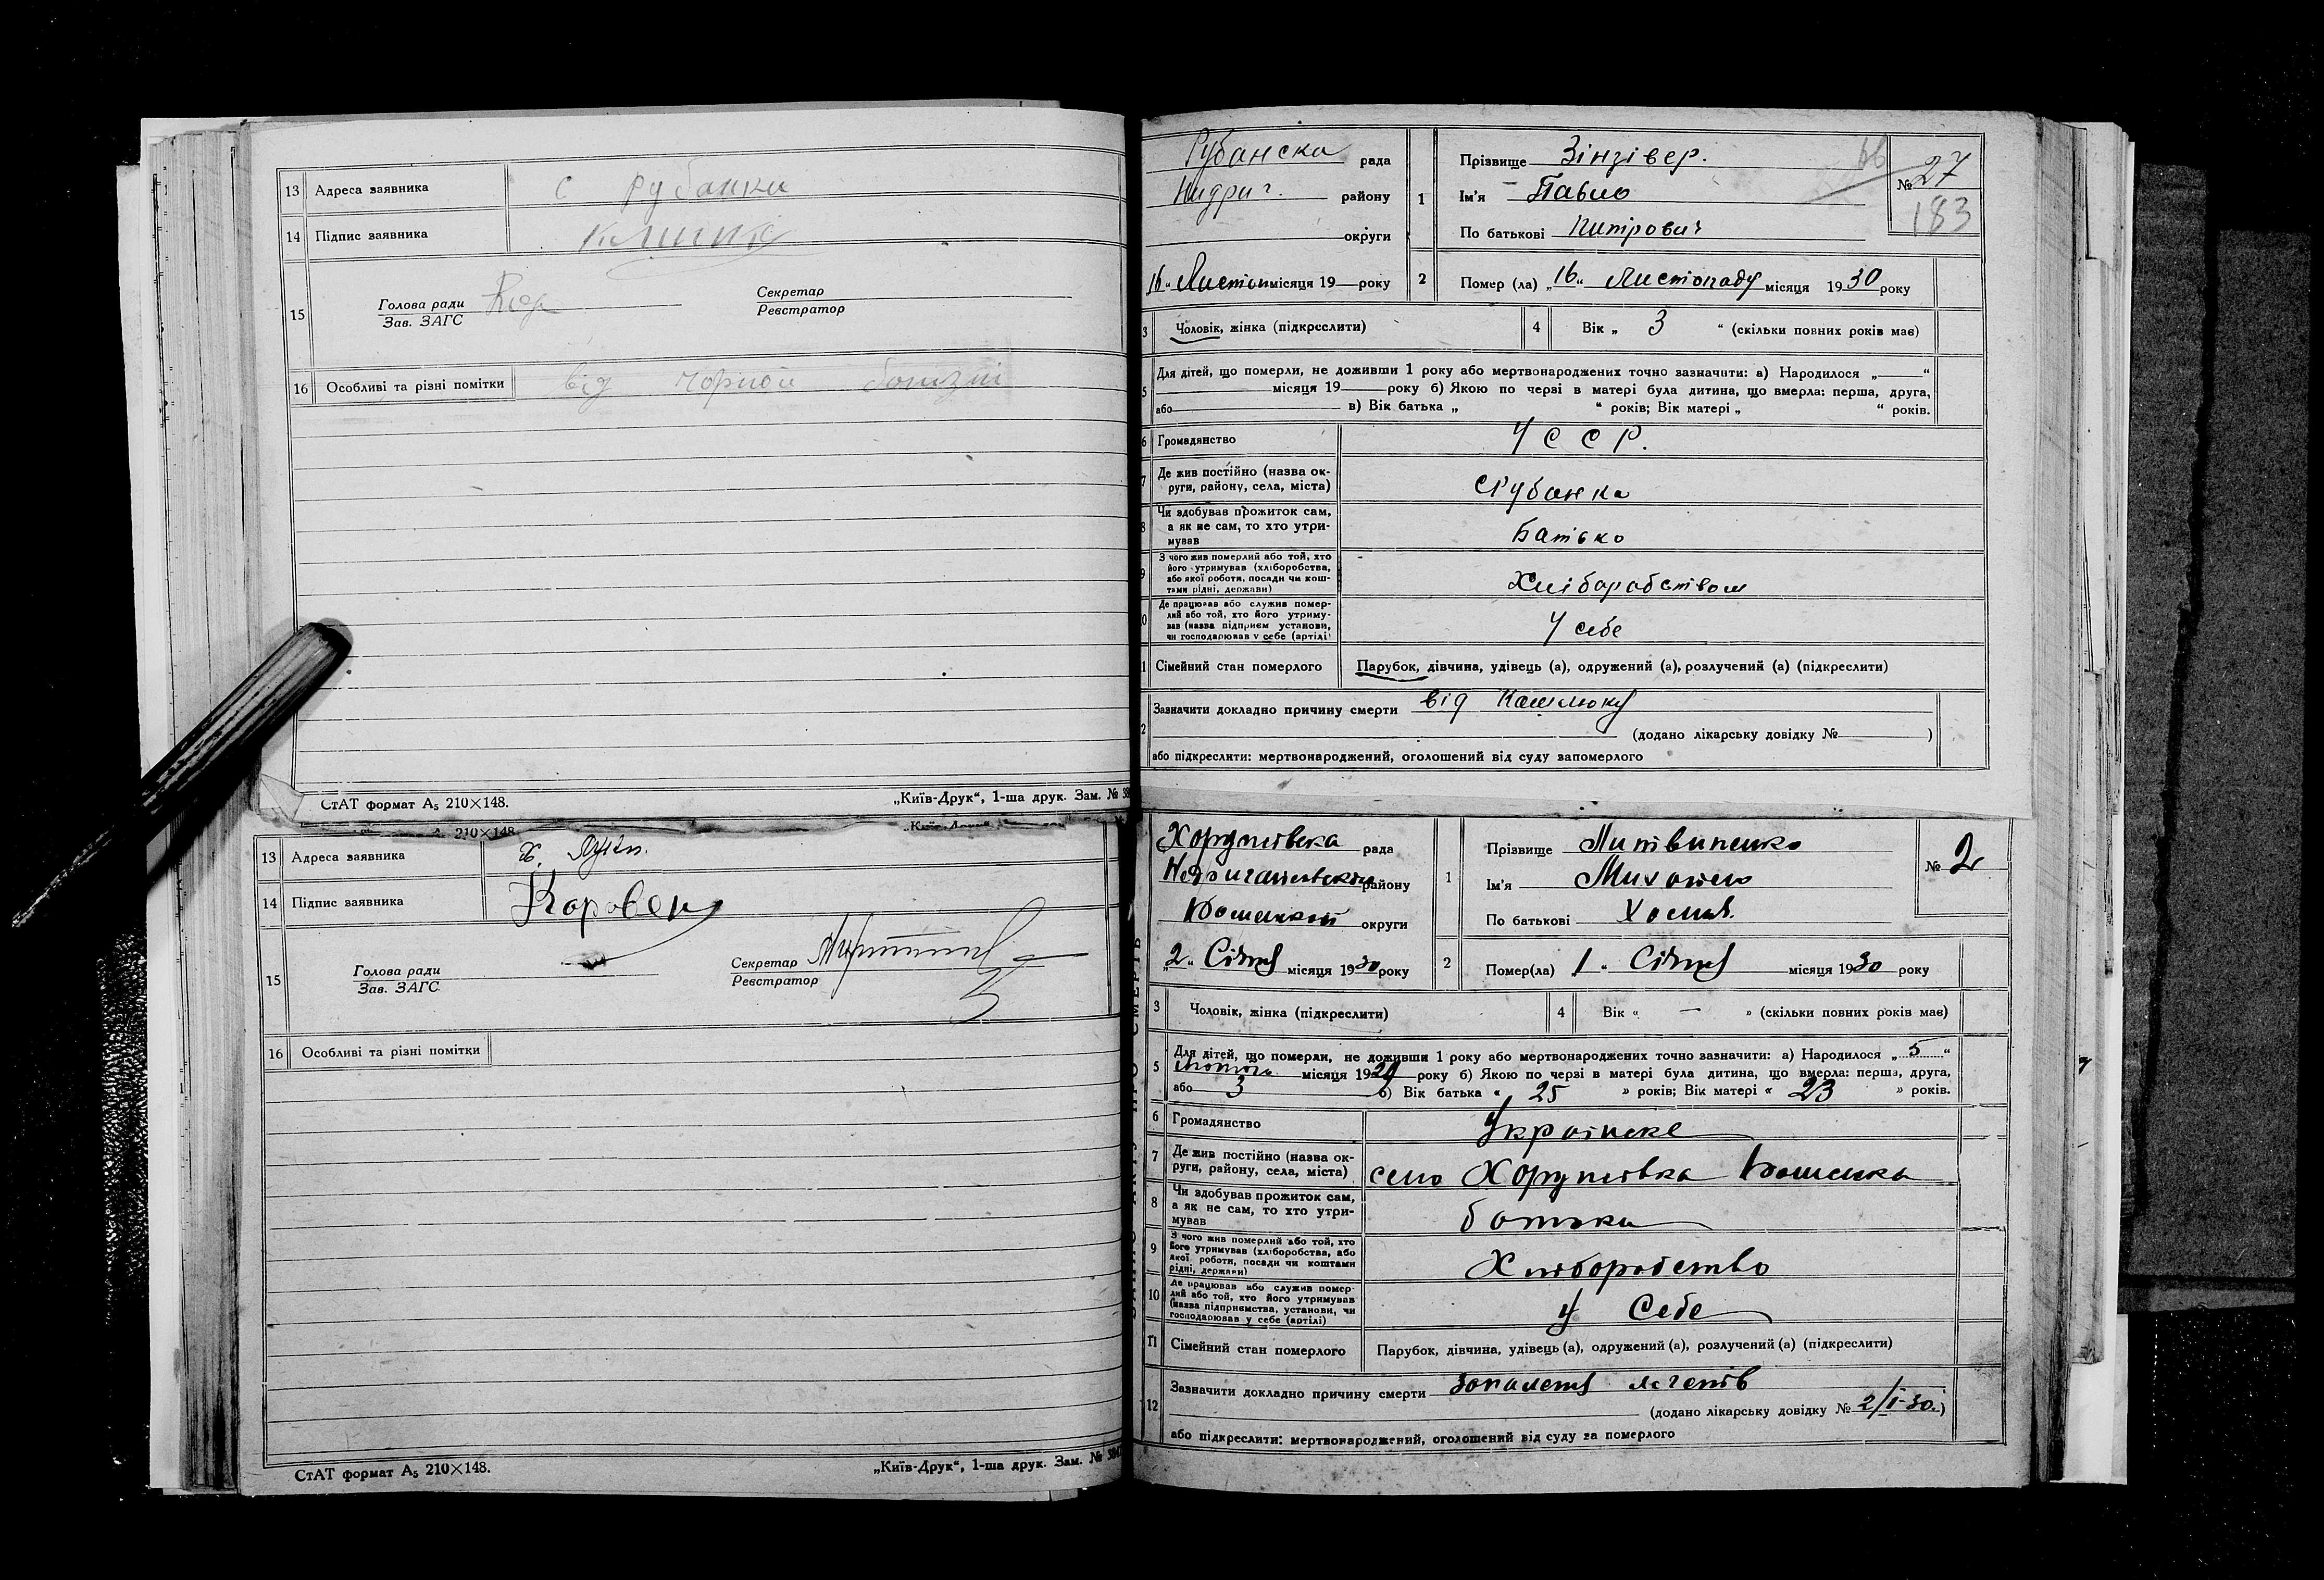 13 Адреса заявника с Рубанка
14 Підпис заявника
15 Голова ради
Зав. ЗАГС
Секретар
Реєстратор
16 Особливі та різні помітки від чорной болизні
СтАТ формат А₅ 210×148. „Київ-Друк“, 1-ша друк. Зам. №
210×148
13 Адреса заявника х.
14 Підпис заявника
15 Голова ради
Зав. ЗАГС
Секретар
Реєстратор
16 Особливі та різні помітки
СтАТ формат А₅ 210×148. „Київ-Друк“, 1-ша друк. Зам. №
Рубанска рада
Нидриг. району
округи
16 „ Листоп місяця 19 року
1 Прізвище Зінзівер.
Ім'я Павло
По батькові Питрович
№ 27
183
2 Помер (ла) „16“ Листопаду місяця 1930 року
3 Чоловік, жінка (підкреслити) 4 Вік „ 3 “ (скільки повних років має)
5 Для дітей, що померли, не доживши 1 року або мертвонароджених точно зазначити: а) Народилося „ “
місяця 19 року б) Якою по черзі в матері була дитина, що вмерла: перша, друга,
або в) Вік батька „ “ років; Вік матері „ “ років.
6 Громадянство УССР.
7 Де жив постійно (назва ок-
руги, району, села, міста) с Рубанка
8 Чи здобував прожиток сам,
а як не сам, то хто утри-
мував Батько
9 З чого жив померлий або той, хто
його утримував (хліборобства,
або якої роботи, посади чи кош-
тами рідні, держави) Хліборобством
10 Де працював або служив помер-
лий або той, хто його утриму-
вав (назва підприєм установи,
чи господарював у себе (артілі) У себе
11 Сімейний стан померлого Парубок, дівчина, удівець (а), одружений (а), розлучений (а) (підкреслити)
12 Зазначити докладно причину смерти від Кашлюку
(додано лікарську довідку № )
або підкреслити: мертвонароджений, оголошений від суду запомерлого
рада
району
округи
„2“ Січня місяця 1930 року
1 Прізвище Литвиненко
Ім'я Михайло
По батькові
№ 2
2 Помер(ла) 1 „ Січня місяця 1930 року
3 Чоловік, жінка (підкреслити) 4 Вік « — » (скільки повних років має)
5 Для дітей, що померли, не доживши 1 року або мертвонароджених точно зазначити: а) Народилося „5“
Лютого місяця 1929 року б) Якою по черзі в матері була дитина, що вмерла: перша, друга,
або 3 в) Вік батька « 25 » років; Вік матері « 23 » років.
6 Громадянство Українске
7 Де жив постійно (назва ок-
руги, району, села, міста) село
8 Чи здобував прожиток сам,
а як не сам, то хто утри-
мував батьки
9 З чого жив померлий або той, хто
його утримував (хліборобства, або
якої роботи, посади чи коштами
рідні, держави) Хліборобство
10 Де працював або служив помер-
лий або той, хто його утримував
(назва підприємства, установи, чи
господарював у себе (артілі) у Себе
11 Сімейний стан померлого Парубок, дівчина, удівець (а), одружений (а), розлучений (а) (підкреслити)
12 Зазначити докладно причину смерти запалення легенів
(додано лікарську довідку № 2/I-30.)
або підкреслити: мертвонароджений, оголошений від суду за померлого